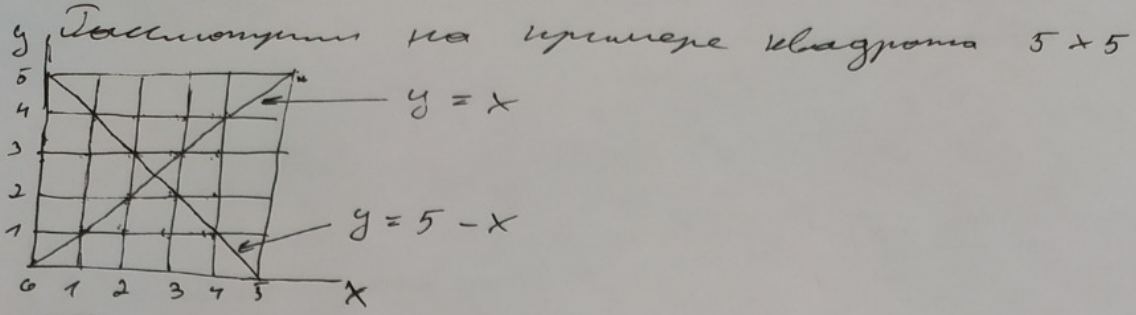 y Рассмотрим на примере квадрата 5 × 5
5
4
y = x
3
2
1
y = 5 - x
0 1 2 3 4 5 x